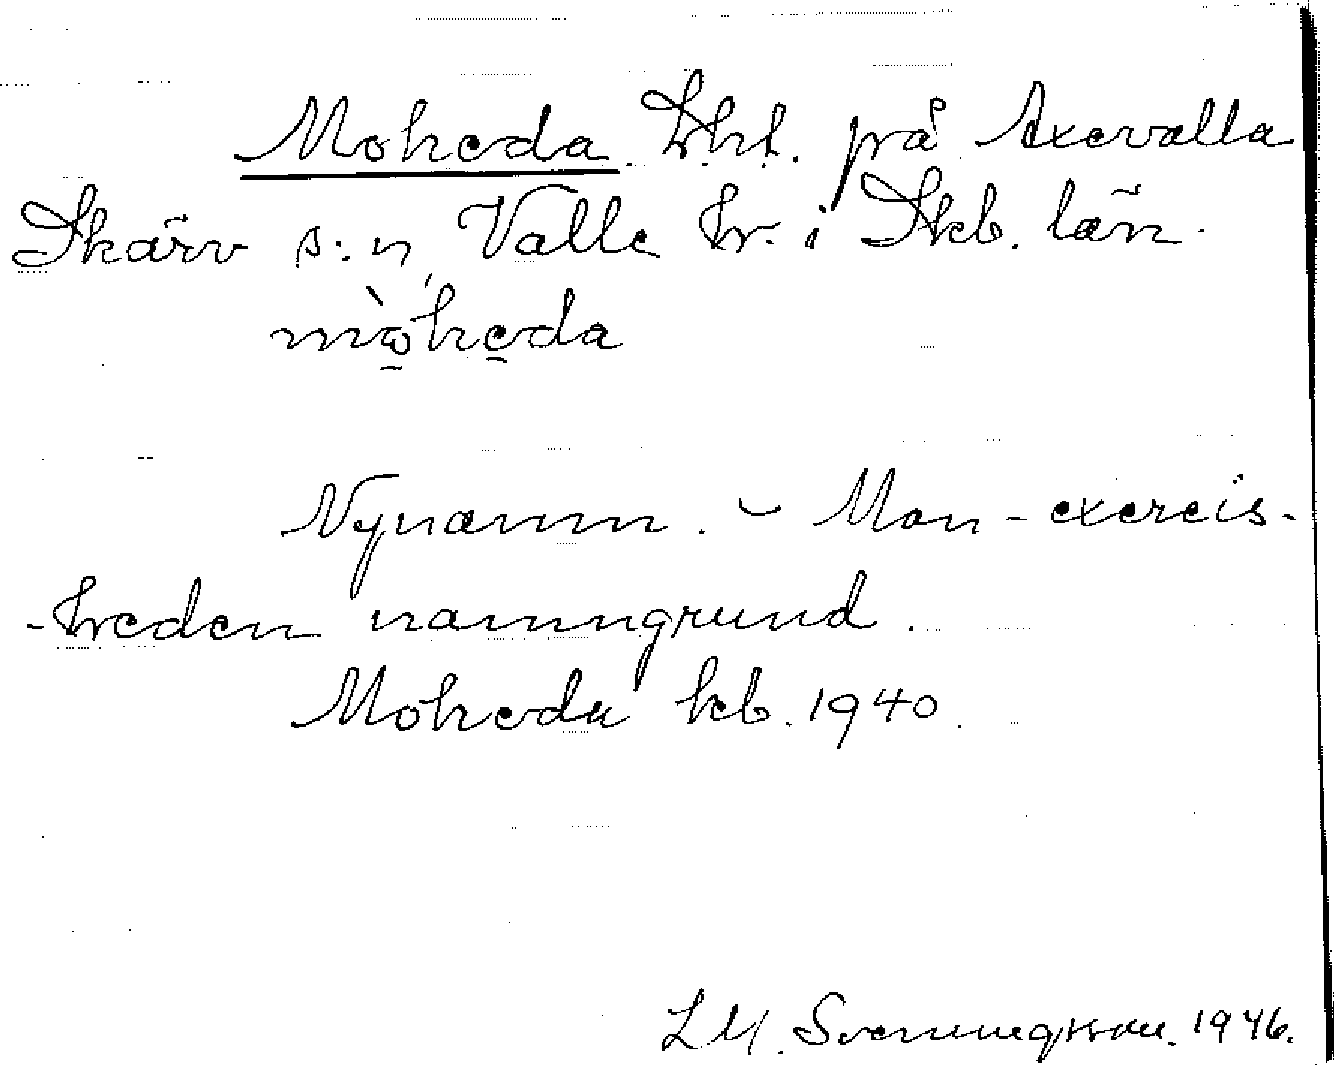 Moheda. Lht. på Axevalla
Skärv s:n, Valle hr. i Skb. län.
mòheda
Nynamn. - Mon - exercis-
-heden namngrund.
Moheda kb. 1940.
L M. Svenungsson. 1946.